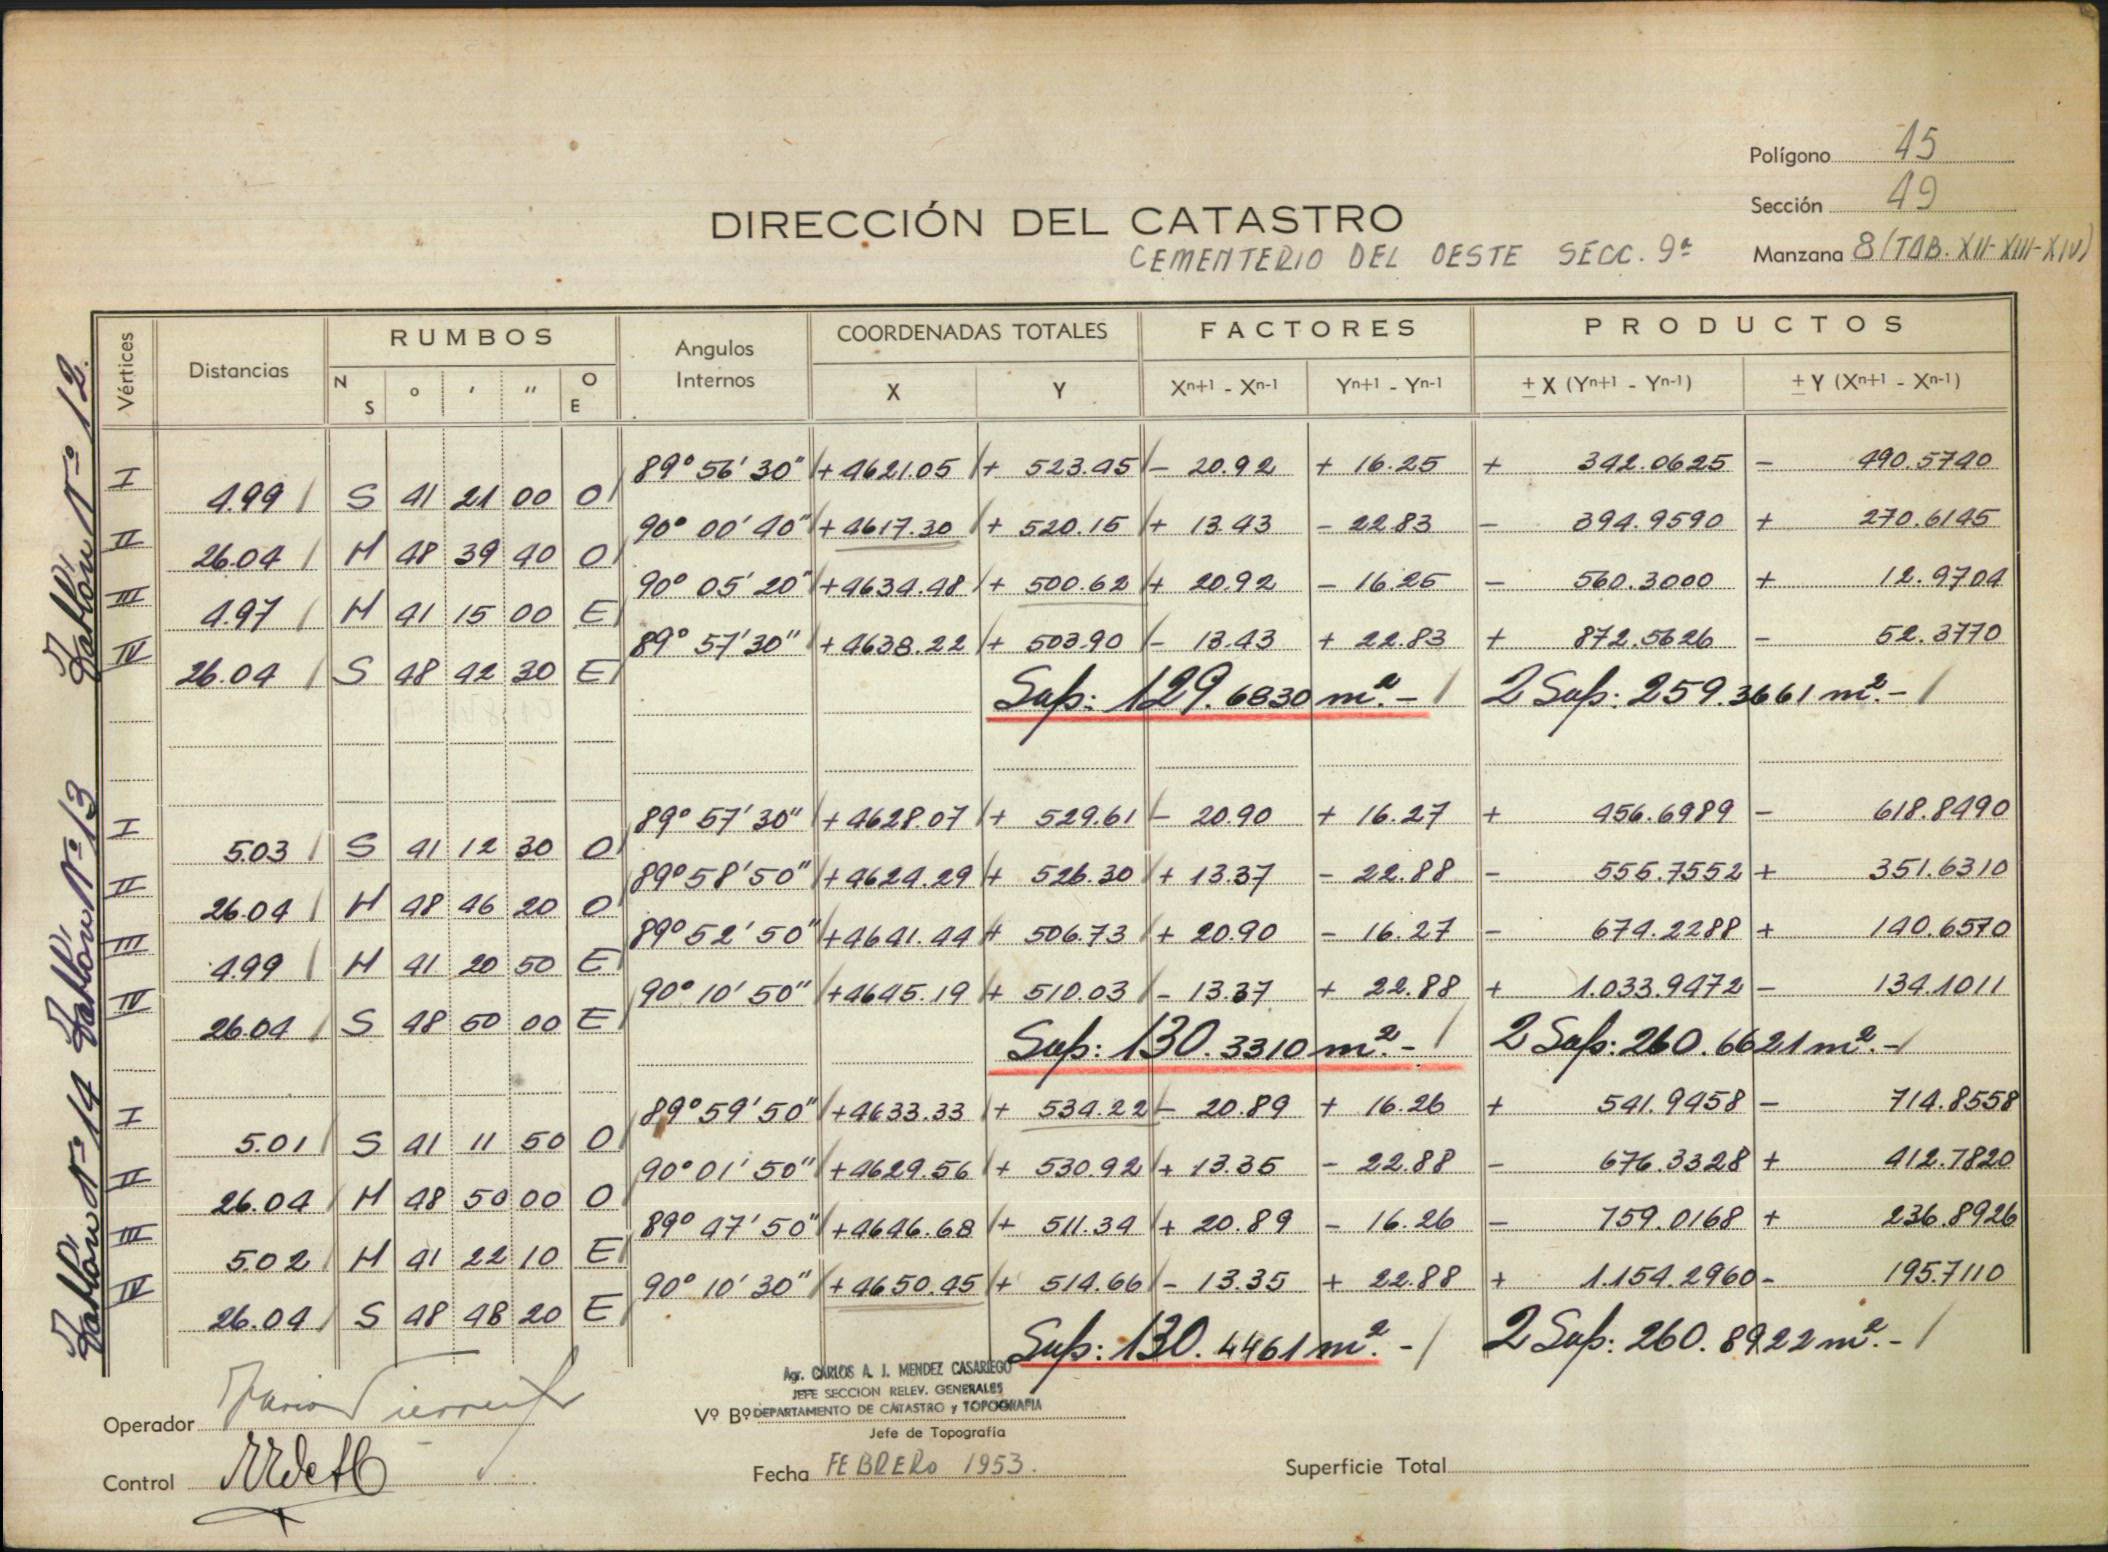 Polígono 45
Sección 49
DIRECCIÓN DEL CATASTRO
CEMENTERIO DEL OESTE SECC. 9ª
Manzana 8 (TAB. XII-XIII-XIV)
Vértices Distancias RUMBOS Angulos Internos COORDENADAS TOTALES FACTORES PRODUCTOS
N S ° ' " O E X Y Xn+1 - Xn-1 Yn+1 - Yn-1 ± X (Yn+1 - Yn-1) ± Y (Xn+1 - Xn-1)
Tablón Nº 12.
I 89° 56' 30" + 4621.05 + 523.45 - 20.92 + 16.25 + 342.0625 - 490.5740
4.99 S 41 21 00 O
II 90° 00' 40" + 4617.30 + 520.15 + 13.43 - 22.83 - 394.9590 + 270.6145
26.04 N 48 39 40 O
III 90° 05' 20" + 4634.48 + 500.62 + 20.92 - 16.25 - 560.3000 + 12.9704
4.97 N 41 15 00 E
IV 89° 57' 30" + 4638.22 + 503.90 - 13.43 + 22.83 + 872.5626 - 52.3770
26.04 S 48 42 30 E
Sup: 129.6830 m². - 2 Sup: 259.3661 m². -
Tablón Nº 13
I 89° 57' 30" + 4628.07 + 529.61 - 20.90 + 16.27 + 456.6989 - 618.8490
5.03 S 41 12 30 O
II 89° 58' 50" + 4624.29 + 526.30 + 13.37 - 22.88 - 555.7552 + 351.6310
26.04 N 48 46 20 O
III 89° 52' 50" + 4641.44 + 506.73 + 20.90 - 16.27 - 674.2288 + 140.6570
4.99 N 41 20 50 E
IV 90° 10' 50" + 4645.19 + 510.03 - 13.37 + 22.88 + 1.033.9472 - 134.1011
26.04 S 48 50 00 E
Sup: 130.3310 m². - 2 Sup: 260.6621 m². -
Tablón Nº 14
I 89° 59' 50" + 4633.33 + 534.22 - 20.89 + 16.26 + 541.9458 - 714.8558
5.01 S 41 11 50 O
II 90° 01' 50" + 4629.56 + 530.92 + 13.35 - 22.88 - 676.3328 + 412.7820
26.04 N 48 50 00 O
III 89° 47' 50" + 4646.68 + 511.34 + 20.89 - 16.26 - 759.0168 + 236.8926
5.02 N 41 22 10 E
IV 90° 10' 30" + 4650.45 + 514.66 - 13.35 + 22.88 + 1.154.2960 - 195.7110
26.04 S 48 48 20 E
Sup: 130.4461 m². - 2 Sup: 260.8922 m². -
Agr. CARLOS A. J. MENDEZ CASARIEGO
JEFE SECCION RELEV. GENERALES
DEPARTAMENTO DE CATASTRO y TOPOGRAFIA
Operador
Vº Bº
Jefe de Topografía
Control
Fecha FEBRERO 1953.
Superficie Total